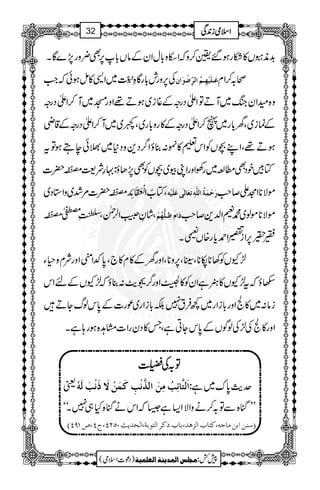 32 اسلامی زندگی
بدمذہبوں کا شکار ہو گئے یقین کرو کہ اسکا وبال ان کے ماں باپ پر بھی ضرور پڑے گا۔
صحابہ کرام عَلَیْہِمُ الرِّضْوَان کی پرورش بارگاہ نبوت میں ایسی کامل ہوئی کہ جب
وہ میدان جنگ میں آتے تو اعلیٰ درجہ کے غازی ہوتے تھے اور مسجد میں آکر اعلیٰ درجہ
کے نمازی، گھر بار میں پہنچ کر اعلیٰ درجہ کے کاروباری، کچہری میں آکر اعلیٰ درجہ کے قاضی
ہوتے تھے، اپنے بچوں کو اس تعلیم کا نمونہ بناؤ اگر دین و دنیا میں بھلائی چاہتے ہو تو یہ
کتابیں خود بھی مطالعہ میں رکھو اور اپنی بیوی بچوں کو بھی پڑھاؤ: بہار شریعت مصنفہ حضرت
مولانا امجد علی صاحب رَحْمَۃُ اللّٰہِ تَعَالٰی عَلَیْہ، کتاب العقائد مصنفہ حضرت مرشدی واستاذی
مولانا مولوی محمد نعیم الدین صاحب دَامَ ظِلُّہُمْ، شان حبیب الرحمٰن، سلطنت مصطفیٰ مصنفہ
فقیر حقیر پر تقصیر احمد یار خاں نعیمی۔
لڑکیوں کو کھانا پکانا، سینا، پرونا، اور گھر کے کام کاج، پاکدامنی، اور شرم و حیاء
سکھاؤ کہ یہ لڑکیوں کا ہنر ہے ان کو کالجیٹ اور گریجویٹ نہ بناؤ کہ لڑکیوں کے لئے اس
زمانہ میں کالج اور بازار میں کچھ فرق نہیں بلکہ بازاری عورت کے پاس لوگ جاتے ہیں
اور کالج کی لڑکی لوگوں کے پاس جاتی ہے، جس کا دن رات مشاہدہ ہو رہا ہے۔
توبہ کی فضیلت
حدیث پاک میں ہے: اَلتَّائِبُ مِنَ الذَّنْبِ كَمَنْ لَا ذَنْبَ لَهُ یعنی
’’گناہ سے توبہ کرنے والا ایسا ہے جیسا کہ اس نے گناہ کیا ہی نہیں۔‘‘
(سنن ابن ماجه، كتاب الزهد، باب ذكر التوبة، الحديث ٤٢٥٠، ج٤، ص ٤٩١)
پیش کش: مجلس المدینة العلمیة (دعوت اسلامی)